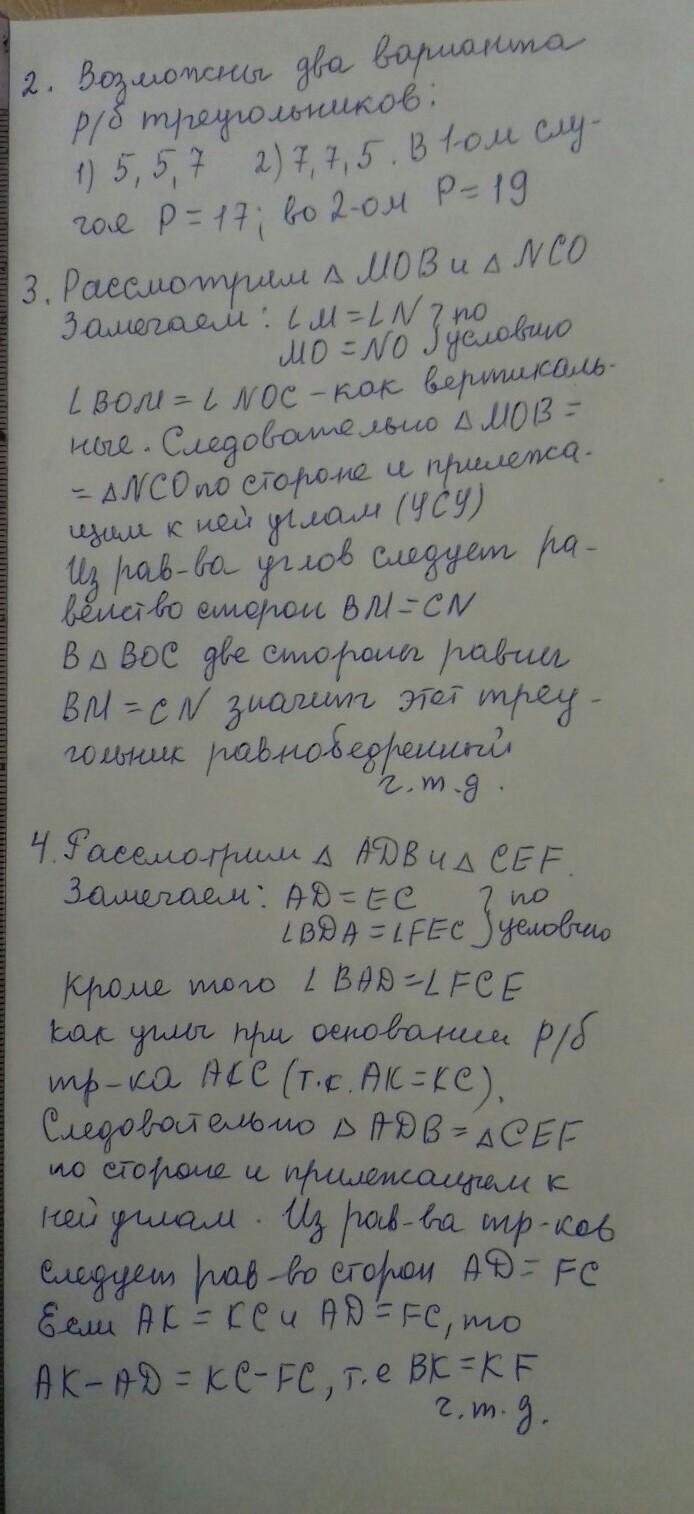 2. Возможны два варианта
р/б треугольников:
1) 5, 5, 7 2) 7, 7, 5. В 1-ом слу-
чае P = 17; во 2-ом P = 19
3. Рассмотрим △ MOB и △ NCO
Замечаем: ∠M = ∠N } по
MO = NO } условию
∠BOM = ∠NOC – как вертикаль-
ные. Следовательно △MOB =
= △NCO по стороне и прилежа-
щим к ней углам (УСУ)
Из рав-ва углов следует ра-
венство сторон BM = CN
В △ BOC две стороны равны
BM = CN значит этот треу-
гольник равнобедренный
ч.т.д.
4. Рассмотрим △ ADB и △ CEF.
Замечаем: AD = EC } по
∠BDA = ∠FEC } условию
Кроме того ∠BAD = ∠FCE
как углы при основании р/б
тр-ка AKC (т.к. AK = KC).
Следовательно △ ADB = △CEF
по стороне и прилежащем к
ней углам. Из рав-ва тр-ков
следует рав-во сторон AD = FC
Если AK = KC и AD = FC, то
AK – AD = KC – FC, т.е BK = KF
ч.т.д.